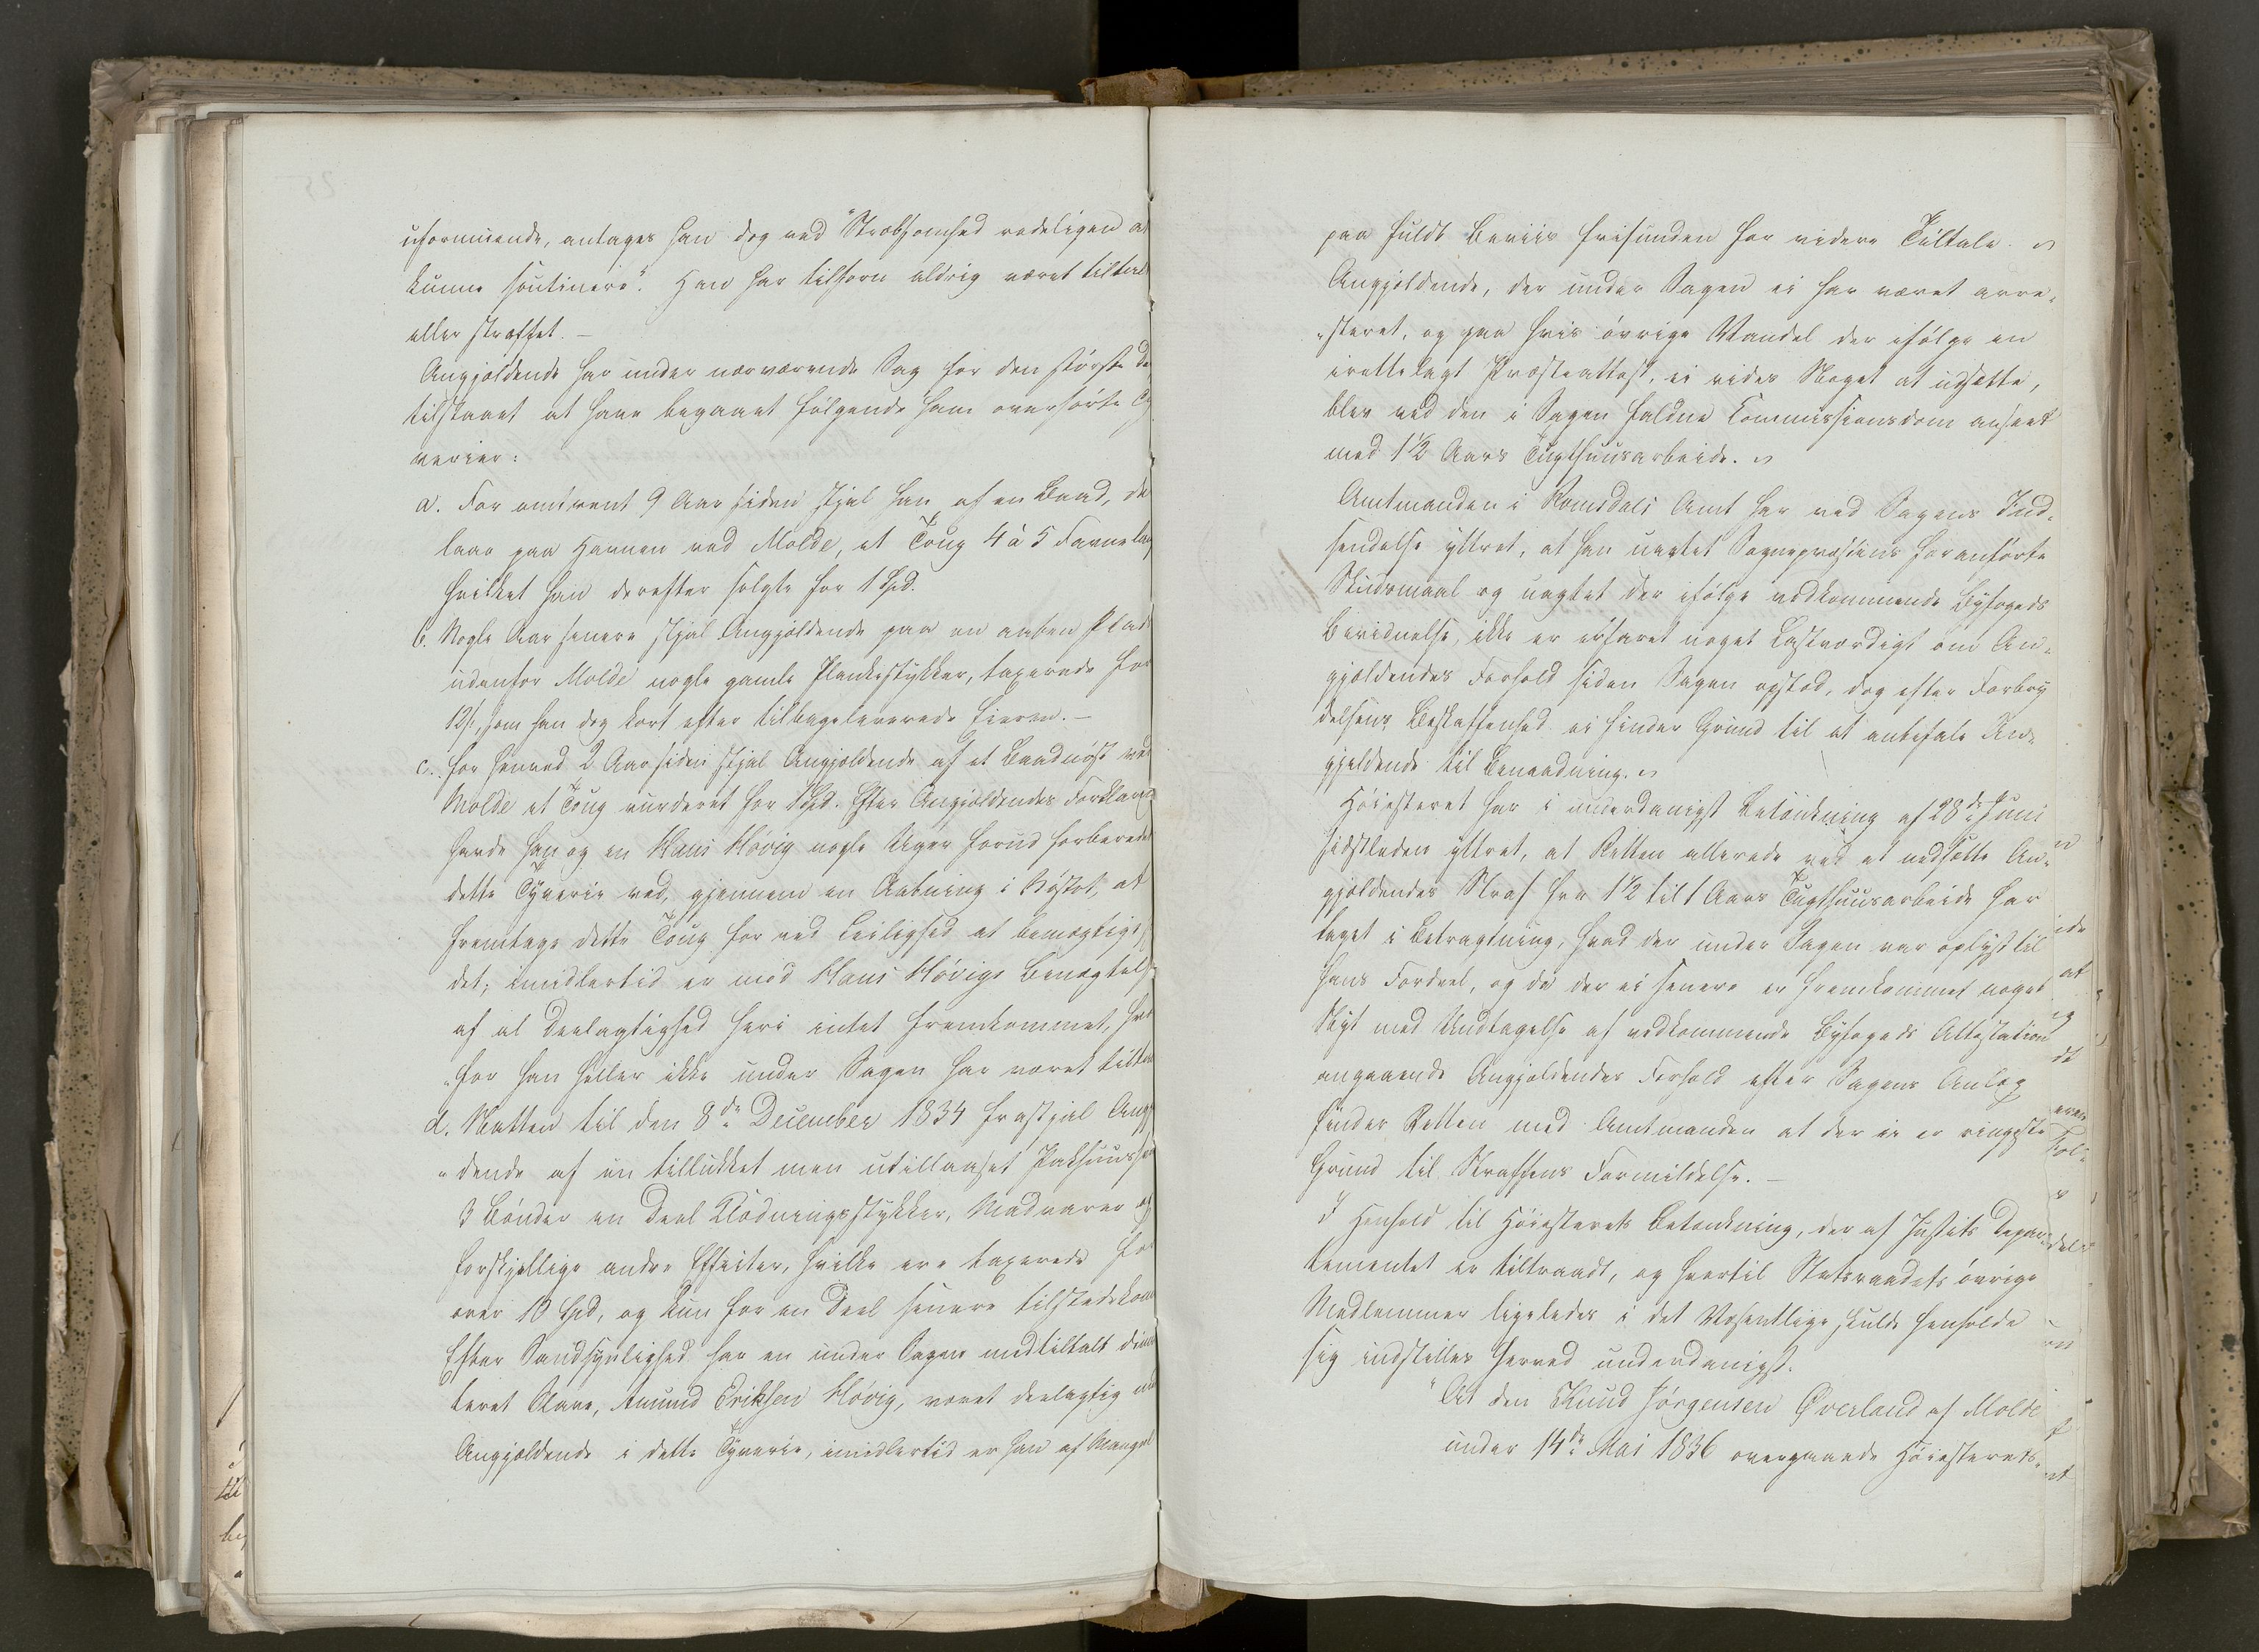 uformuende, antages han dog ved "Stræbsomhed redeligen at
kunne soutinere". Han har tilforn aldrig været tiltalt
eller straffet. –
Angjældende har under nærværende Sag for den største De
tilstaaet at have begaaet følgende ham overførte Ty
verier:
a. For omtrent 9 Aar siden stjal han af en Baad, de
laae paa Havnen ved Molde, et Toug 4 à 5 Favne la
hvilket han derefter solgte for 1 Spd.
b. Nogle Aar senere stjal Angjældende paa en aaben Plads
udenfor Molde nogle gamle Plankestykker, taxerede for
12 s., som han dog kort efter tilbageleverede Eieren. –
c. For henved 2 Aar siden stjal Angjældende af et Baadnøst ved
Molde et Toug vurderet for 1 Spd. Efter Angjældendes Forklaring
havde han og en Hans Høvig nogle Uger forud forberedet
dette Tyverie ved, gjennem en Aabning i Nøstet, at
fremtage dette Toug for ved Leilighed at bemægtige s
det; imidlertid er mod Hans Høvigs Benægtelse
af al Deelagtighed heri intet fremkommet, hvor
"for han heller ikke under Sagen har været tiltal
d. Natten til den 8de December 1834 frastjal Angj
"dende af en tillukket men utillaaset Pakhuus
3 Bønder en Deel Klædningsstykker, Madvarer og
forskjellige andre Effecter, hvilke ere taxerede for
over 10 Spd, og kun for en Deel senere tilstedekom
Efter Sandsynlighed har en under Sagen medtiltalt dimit
teret Slave, Amund Eriksen Høvig, været deelagtig med
Angjældende i dette Tyverie, imidlertid er han af Mangel
paa fuldt Beviis frifunden for videre Tiltale.
Angjældende, der under Sagen ei har været arre-
"steret, og paa hvis øvrige Vandel der ifølge en
irettelagt Præsteattest, ei vides Noget at udsætte,
blev ved den i Sagen faldne Commissionsdom anseet
med 1½ Aars Tugthuusarbeide.
Amtmanden i Romsdals Amt har ved Sagens Ind-
sendelse yttret, at han uagtet Sognepræstens foranførte
Skudsmaal og uagtet der ifølge vedkommende Byfogeds
Bevidnelse, ikke er erfaret noget Lastværdigt om An-
gjældendes Forhold siden Sagen opstod, dog efter Forbry
delsens Beskaffenhed ei finder Grund til at anbefale An-
gjældende til Benaadning.
Høiesteret har i underdanigst Betænkning af 28de Juni
sidstleden yttret, at Retten allerede ved at nedsætte An-
gjældendes Straf fra 1½ til 1 Aars Tugthuusarbeide har
taget i Betragtning, hvad der under Sagen var oplyst til
hans Fordeel, og da der ei senere er fremkommet noget
Nyt med Undtagelse af vedkommende Byfogeds Attestation
angaaende Angjældendes Forhold efter Sagens Anlæg
finder Retten med Amtmanden at der ei er ringeste
Grund til Straffens Formildelse. –
I Henhold til Høiesterets Betænkning, der af Justits Depar-
tementet er tiltraadt, og hvortil Statsraadets øvrige
Medlemmer ligeledes i det Væsentlige skulde henholde
sig indstilles herved underdanigst.
"At den Knud Jørgensen Øverland af Molde
under 14de Mai 1836 overgaaede Høiesterets-